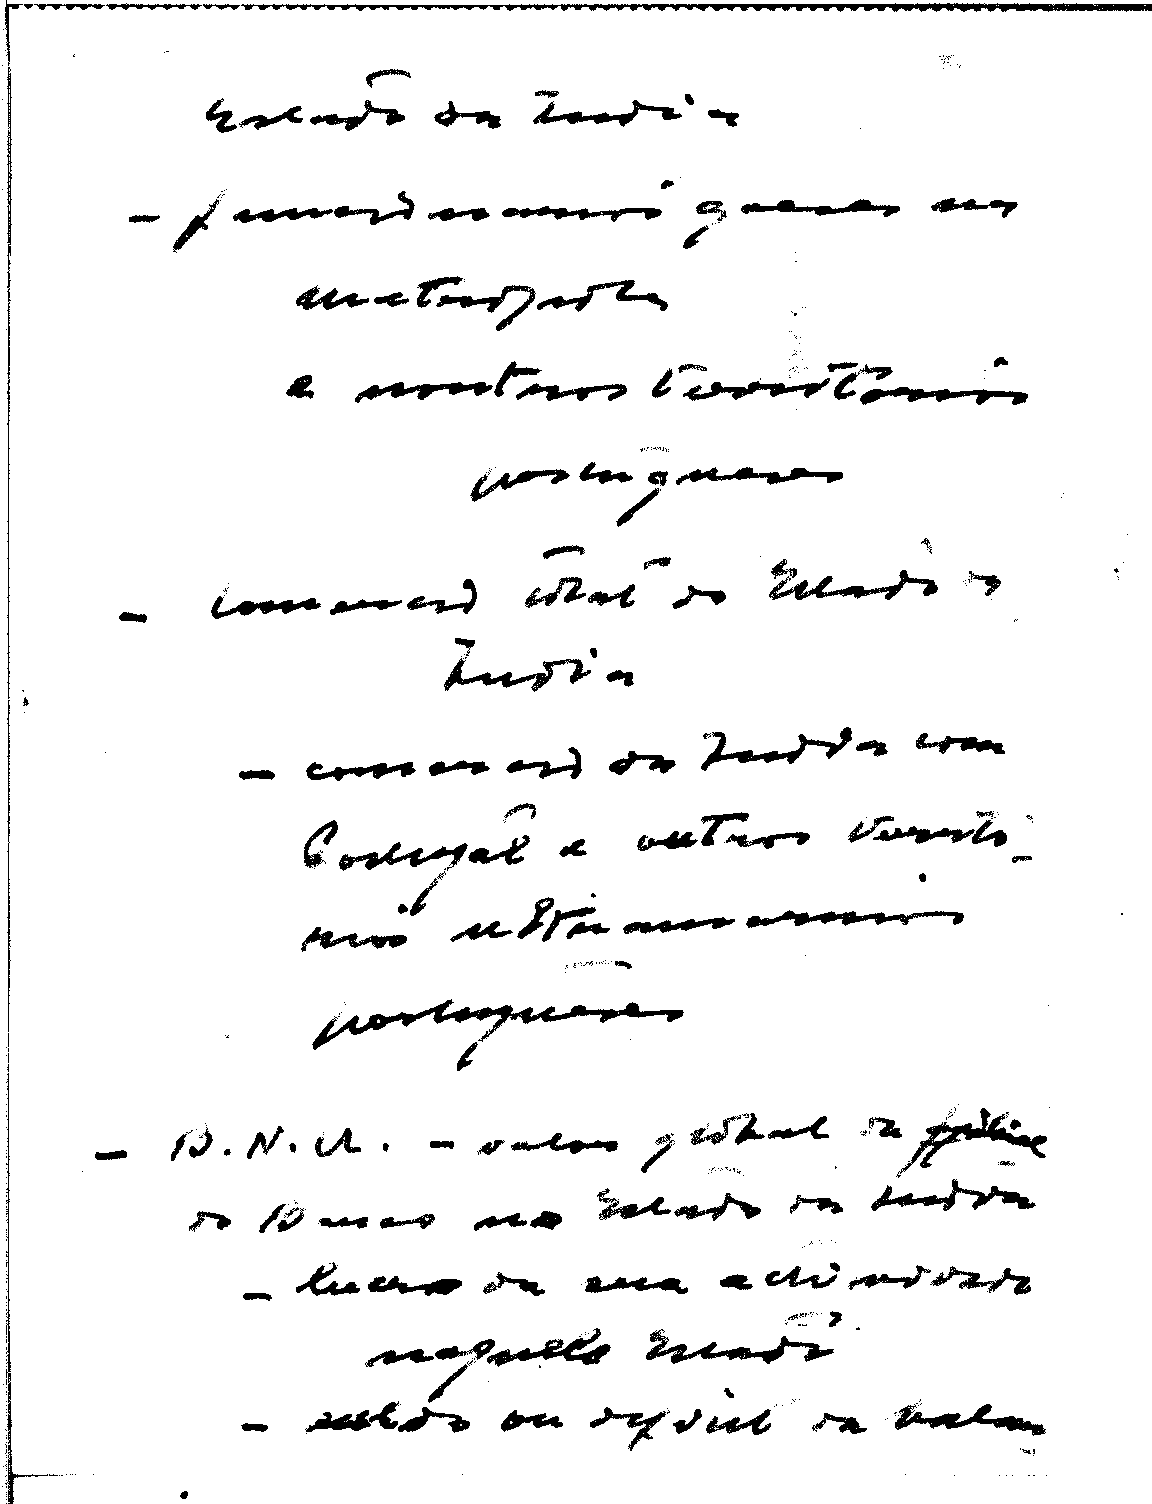 Estado da India
- funcionarios goeses na
metropole
e noutros territorios
portugueses
- comercio total do Estado da
India
- comercio da India com
Portugal e outros territo-
rios ultramarinos
portugueses
- B.N.U. - valor global da
do Banco no Estado da India
- lucro da sua actividade
naquele Estado
- saldo ou deficit da balan